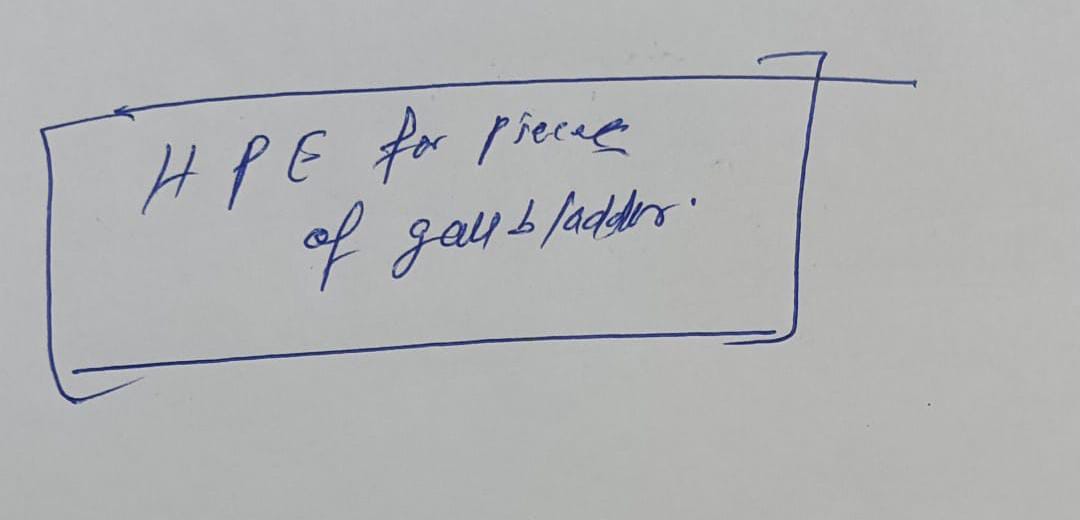 HPE for pieces
of gallbladder.